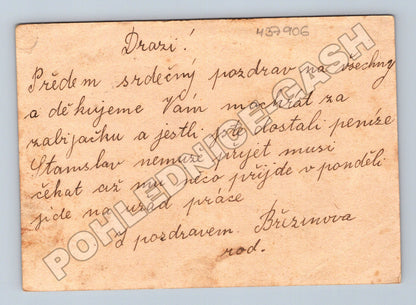 437906
Drazí!
Předem srdečný pozdrav na všechny
a děkujeme Vám mockrát za
zabijačku a jestli jste dostali peníze
Stanislav nemuže přijet musí
čekat až mu něco prijde v ponděli
jde na uřad práce
S pozdravem Březinova
rod.
POHLEDNICE-GASH